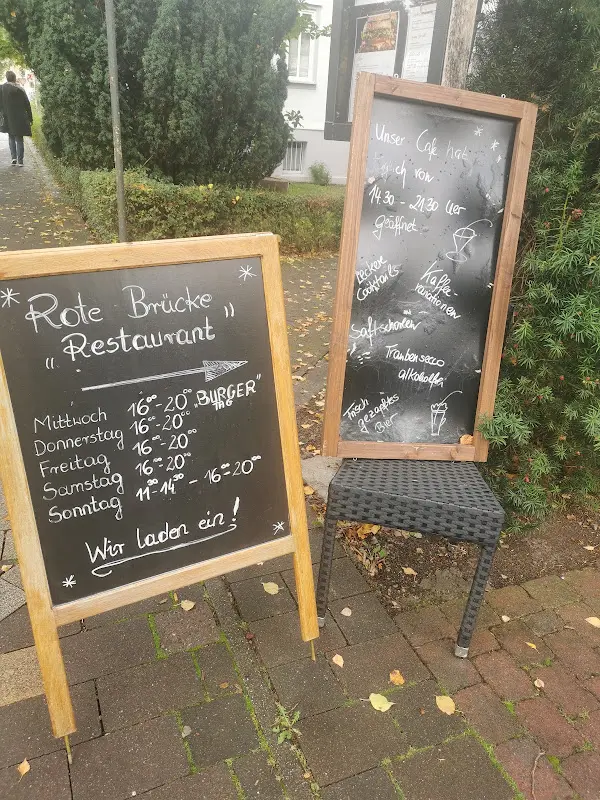 Rote Brücke
"Restaurant"
Mittwoch 16⁰⁰-20⁰⁰ "BURGER"
TAG
Donnerstag 16⁰⁰-20⁰⁰
Freitag 16⁰⁰-20⁰⁰
Samstag 16⁰⁰-20⁰⁰
Sonntag 11³⁰-14³⁰ - 16⁰⁰-20⁰⁰
Wir laden ein!
Unser Cafe hat
von
14:30 - 21:30 Uer
geöffnet
Leckere
Cocktails
Kaffee-
variationen
Saftschorlen
Traubensecco
alkoholfrei
Frisch
gezapftes
Bier